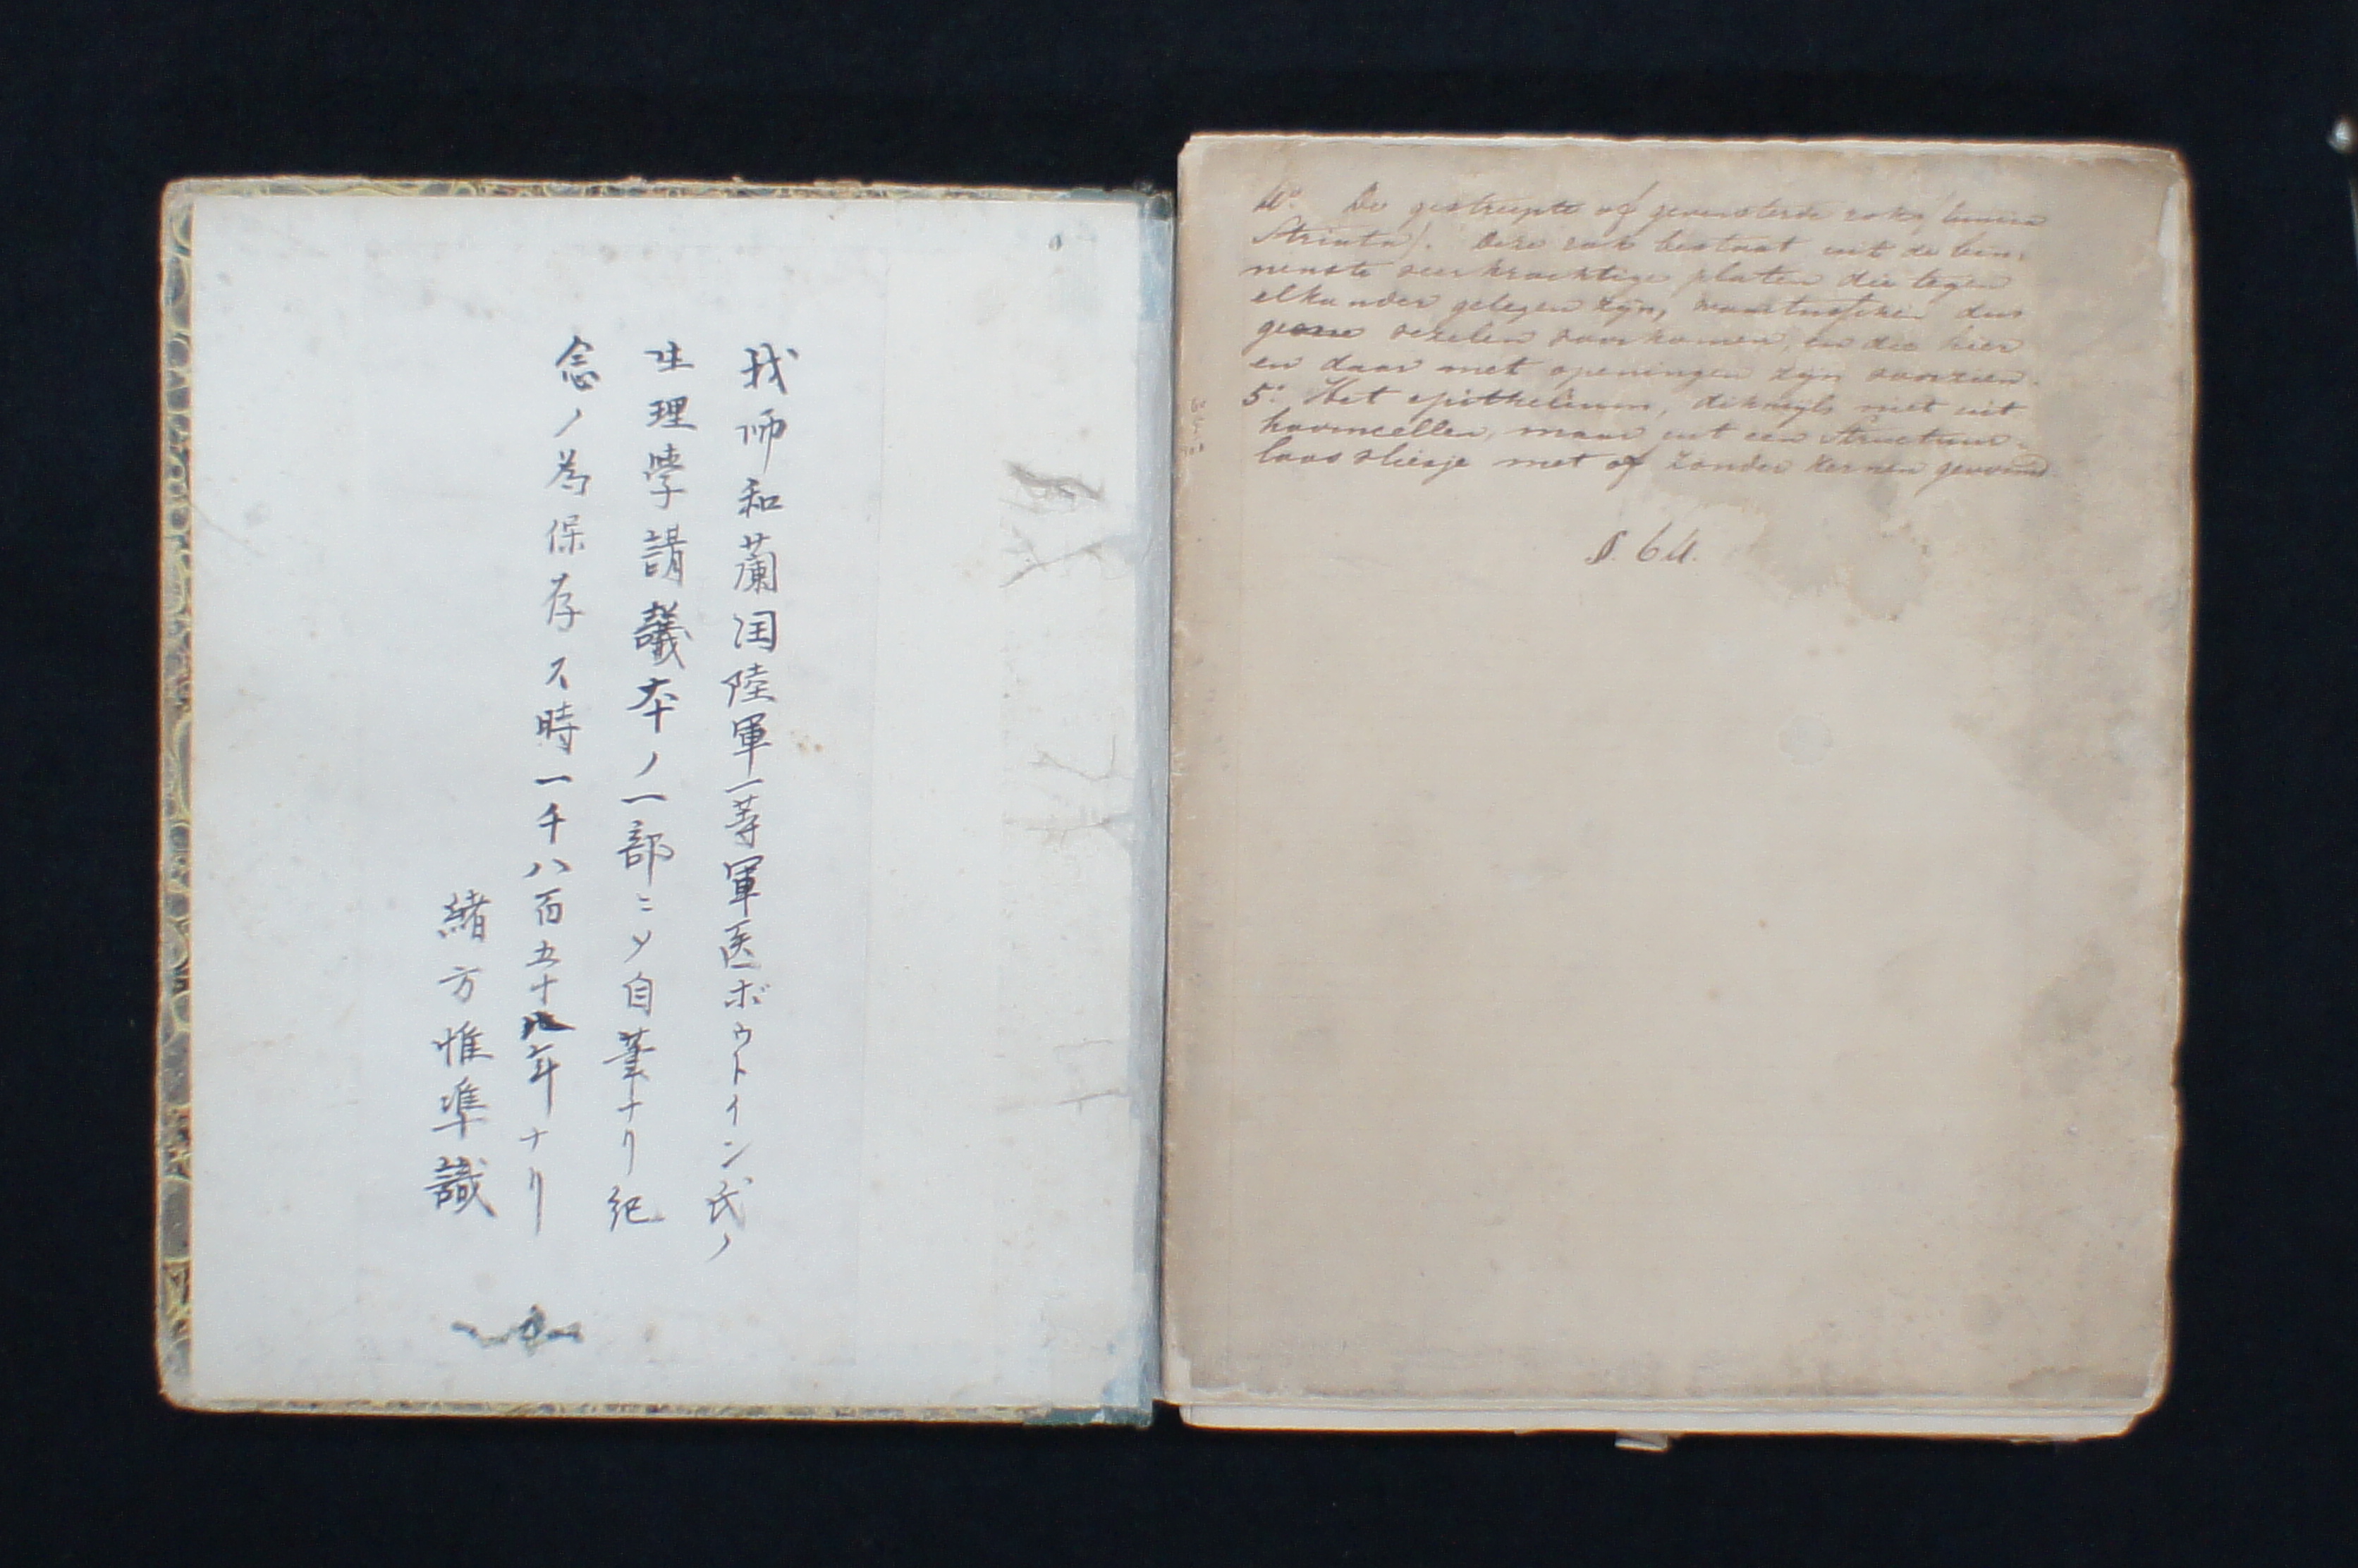 我師和蘭国陸軍一等軍医ボウトイン氏ノ
生理学講義本ノ一部ニソ自筆ナリ紀
念ノ為保存ス時一千八百五十年ナリ
緒方惟準識
4° De gestreepte of gevensterde rok (lamina
Striata). Deze rok bestaat uit de bin-
nenste veerkrachtige platen die tegen
elkander gelegen zyn, waartusschen dus
geene vezelen voorkomen, en die hier
en daar met openingen zyn voorzien.
5° Het epithelium, dikwyls niet uit
hoorncellen, maar uit een Structuur-
loos vliesje met of zonder kernen gevormd
§. 64.